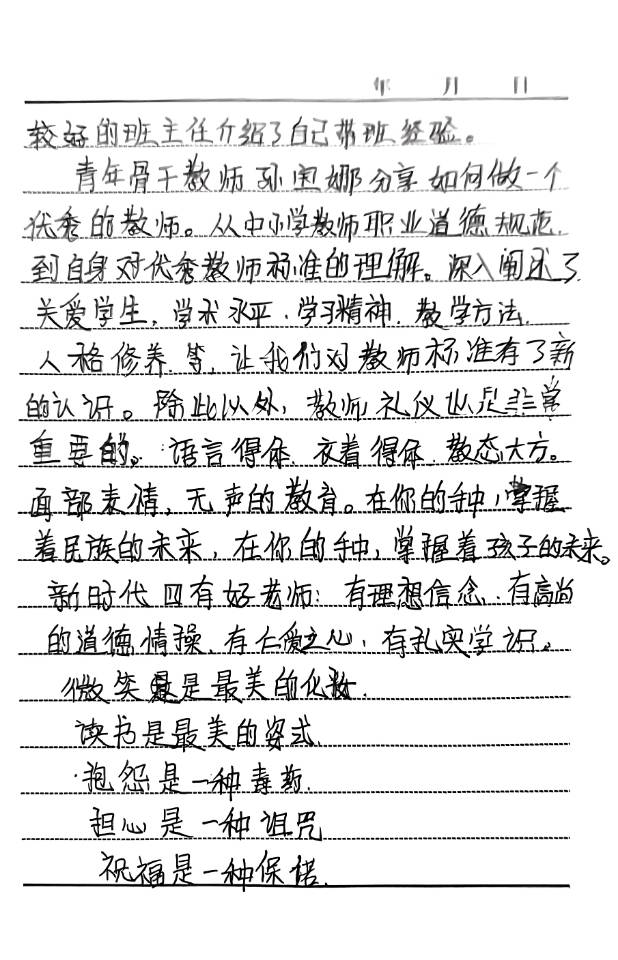 年 月 日
较好的班主任介绍了自己带班经验。
青年骨干教师孙国娜分享如何做一个
优秀的教师。从中小学教师职业道德规范,
到自身对优秀教师标准的理解。深入阐述了
关爱学生,学术水平,学习精神,教学方法,
人格修养,等,让我们对教师标准有了新
的认识。除此以外,教师礼仪也是非常
重要的。语言得体,衣着得体,教态大方。
面部表情,无声的教育。在你的手中,掌握
着民族的未来,在你的手中,掌握着孩子的未来。
新时代四有好老师:有理想信念,有高尚
的道德情操,有仁爱之心,有扎实学识。
微笑是最美的化妆,
读书是最美的姿式,
抱怨是一种毒药,
担心是一种诅咒
祝福是一种保诺.